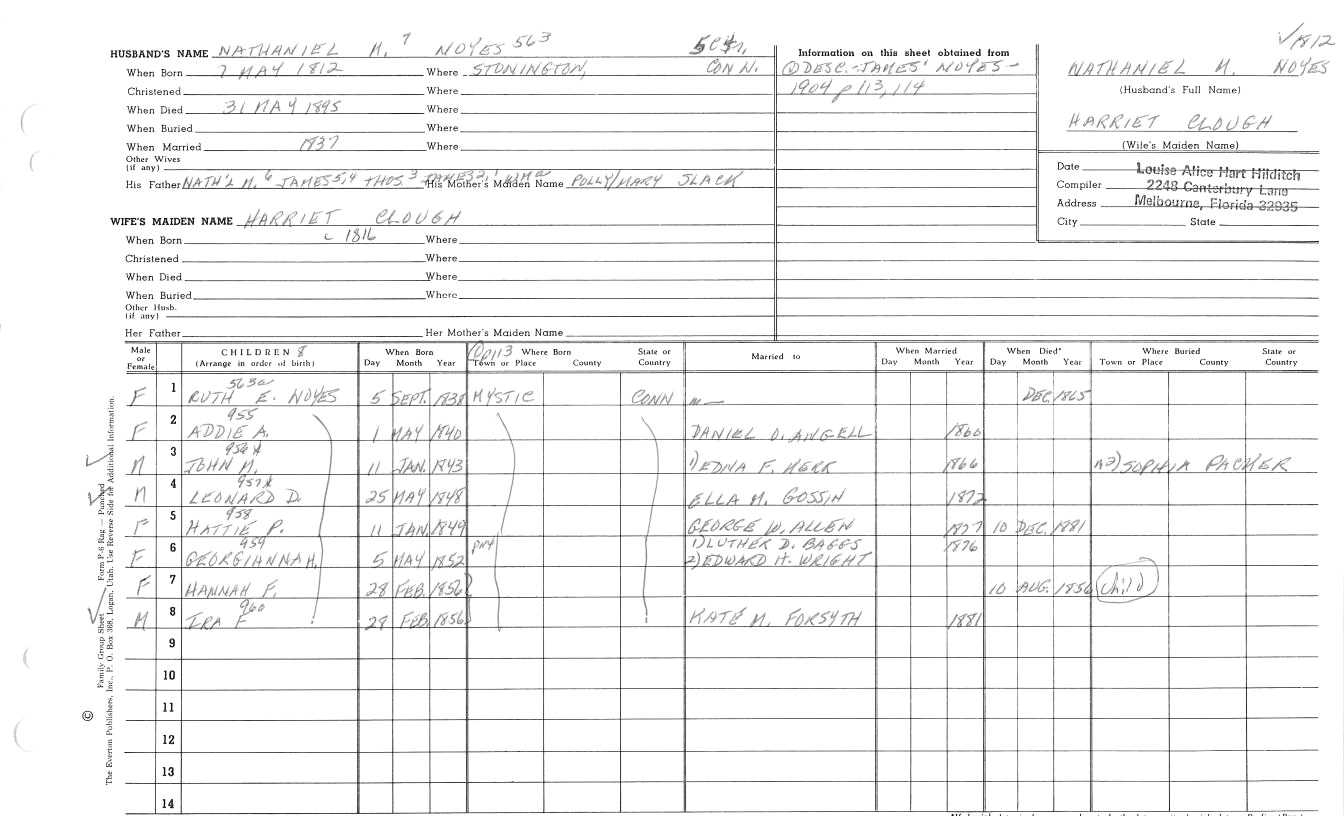 √1812
HUSBAND'S NAME NATHANIEL M. 7 NOYES 563 5 CH. Information on this sheet obtained from
When Born 7 MAY 1812 Where STONINGTON, CONN. ① DESC.-JAMES' NOYES- NATHANIEL M. NOYES
Christened Where 1904 p 113, 114 (Husband's Full Name)
When Died 31 MAY 1895 Where
When Buried Where HARRIET CLOUGH
When Married 1837 Where (Wife's Maiden Name)
Other Wives
(if any)
His Father NATH'L M. 6 JAMES 5,4 THOS. 3 JAMES 2,1 His Mother's Maiden Name POLLY/MARY SLACK
Date Louise Alice Hart Hilditch
Compiler 2248 Canterbury Lane
Address Melbourne, Florida 32935
City State
WIFE'S MAIDEN NAME HARRIET CLOUGH
When Born c 1816 Where
Christened Where
When Died Where
When Buried Where
Other Husb.
(if any)
Her Father Her Mother's Maiden Name
Male or Female CHILDREN 8 (Arrange in order of birth) When Born Day Month Year ① p113 Where Born Town or Place County State or Country Married to When Married Day Month Year When Died* Day Month Year Where Buried Town or Place County State or Country
563a
F 1 RUTH E. NOYES 5 SEPT. 1838 MYSTIC CONN m— DEC. 1865
955
F 2 ADDIE A. 1 MAY 1840 DANIEL D. ANGELL 1860
956 *
M 3 JOHN M. 11 JAN. 1843 1) EDNA F. HERR 1866 m2) SOPHIA PACHER
957 *
M 4 LEONARD D. 25 MAY 1848 ELLA M. GOSSIN 1872
958
F 5 HATTIE P. 11 JAN. 1849 GEORGE W. ALLEN 1877 10 DEC. 1881
959 p114 1) LUTHER D. BAGGS 1876
F 6 GEORGIANNA H. 5 MAY 1852 2) EDWARD H. WRIGHT
F 7 HANNAH F. 28 FEB. 1856 10 AUG. 1856 Child
960
M 8 IRA F 28 FEB. 1856 KATE M. FORSYTH 1881
9
10
11
12
13
14
Family Group Sheet Form P-6 Rag — Punched
© The Everton Publishers, Inc., P. O. Box 368, Logan, Utah. Use Reverse Side for Additional Information.